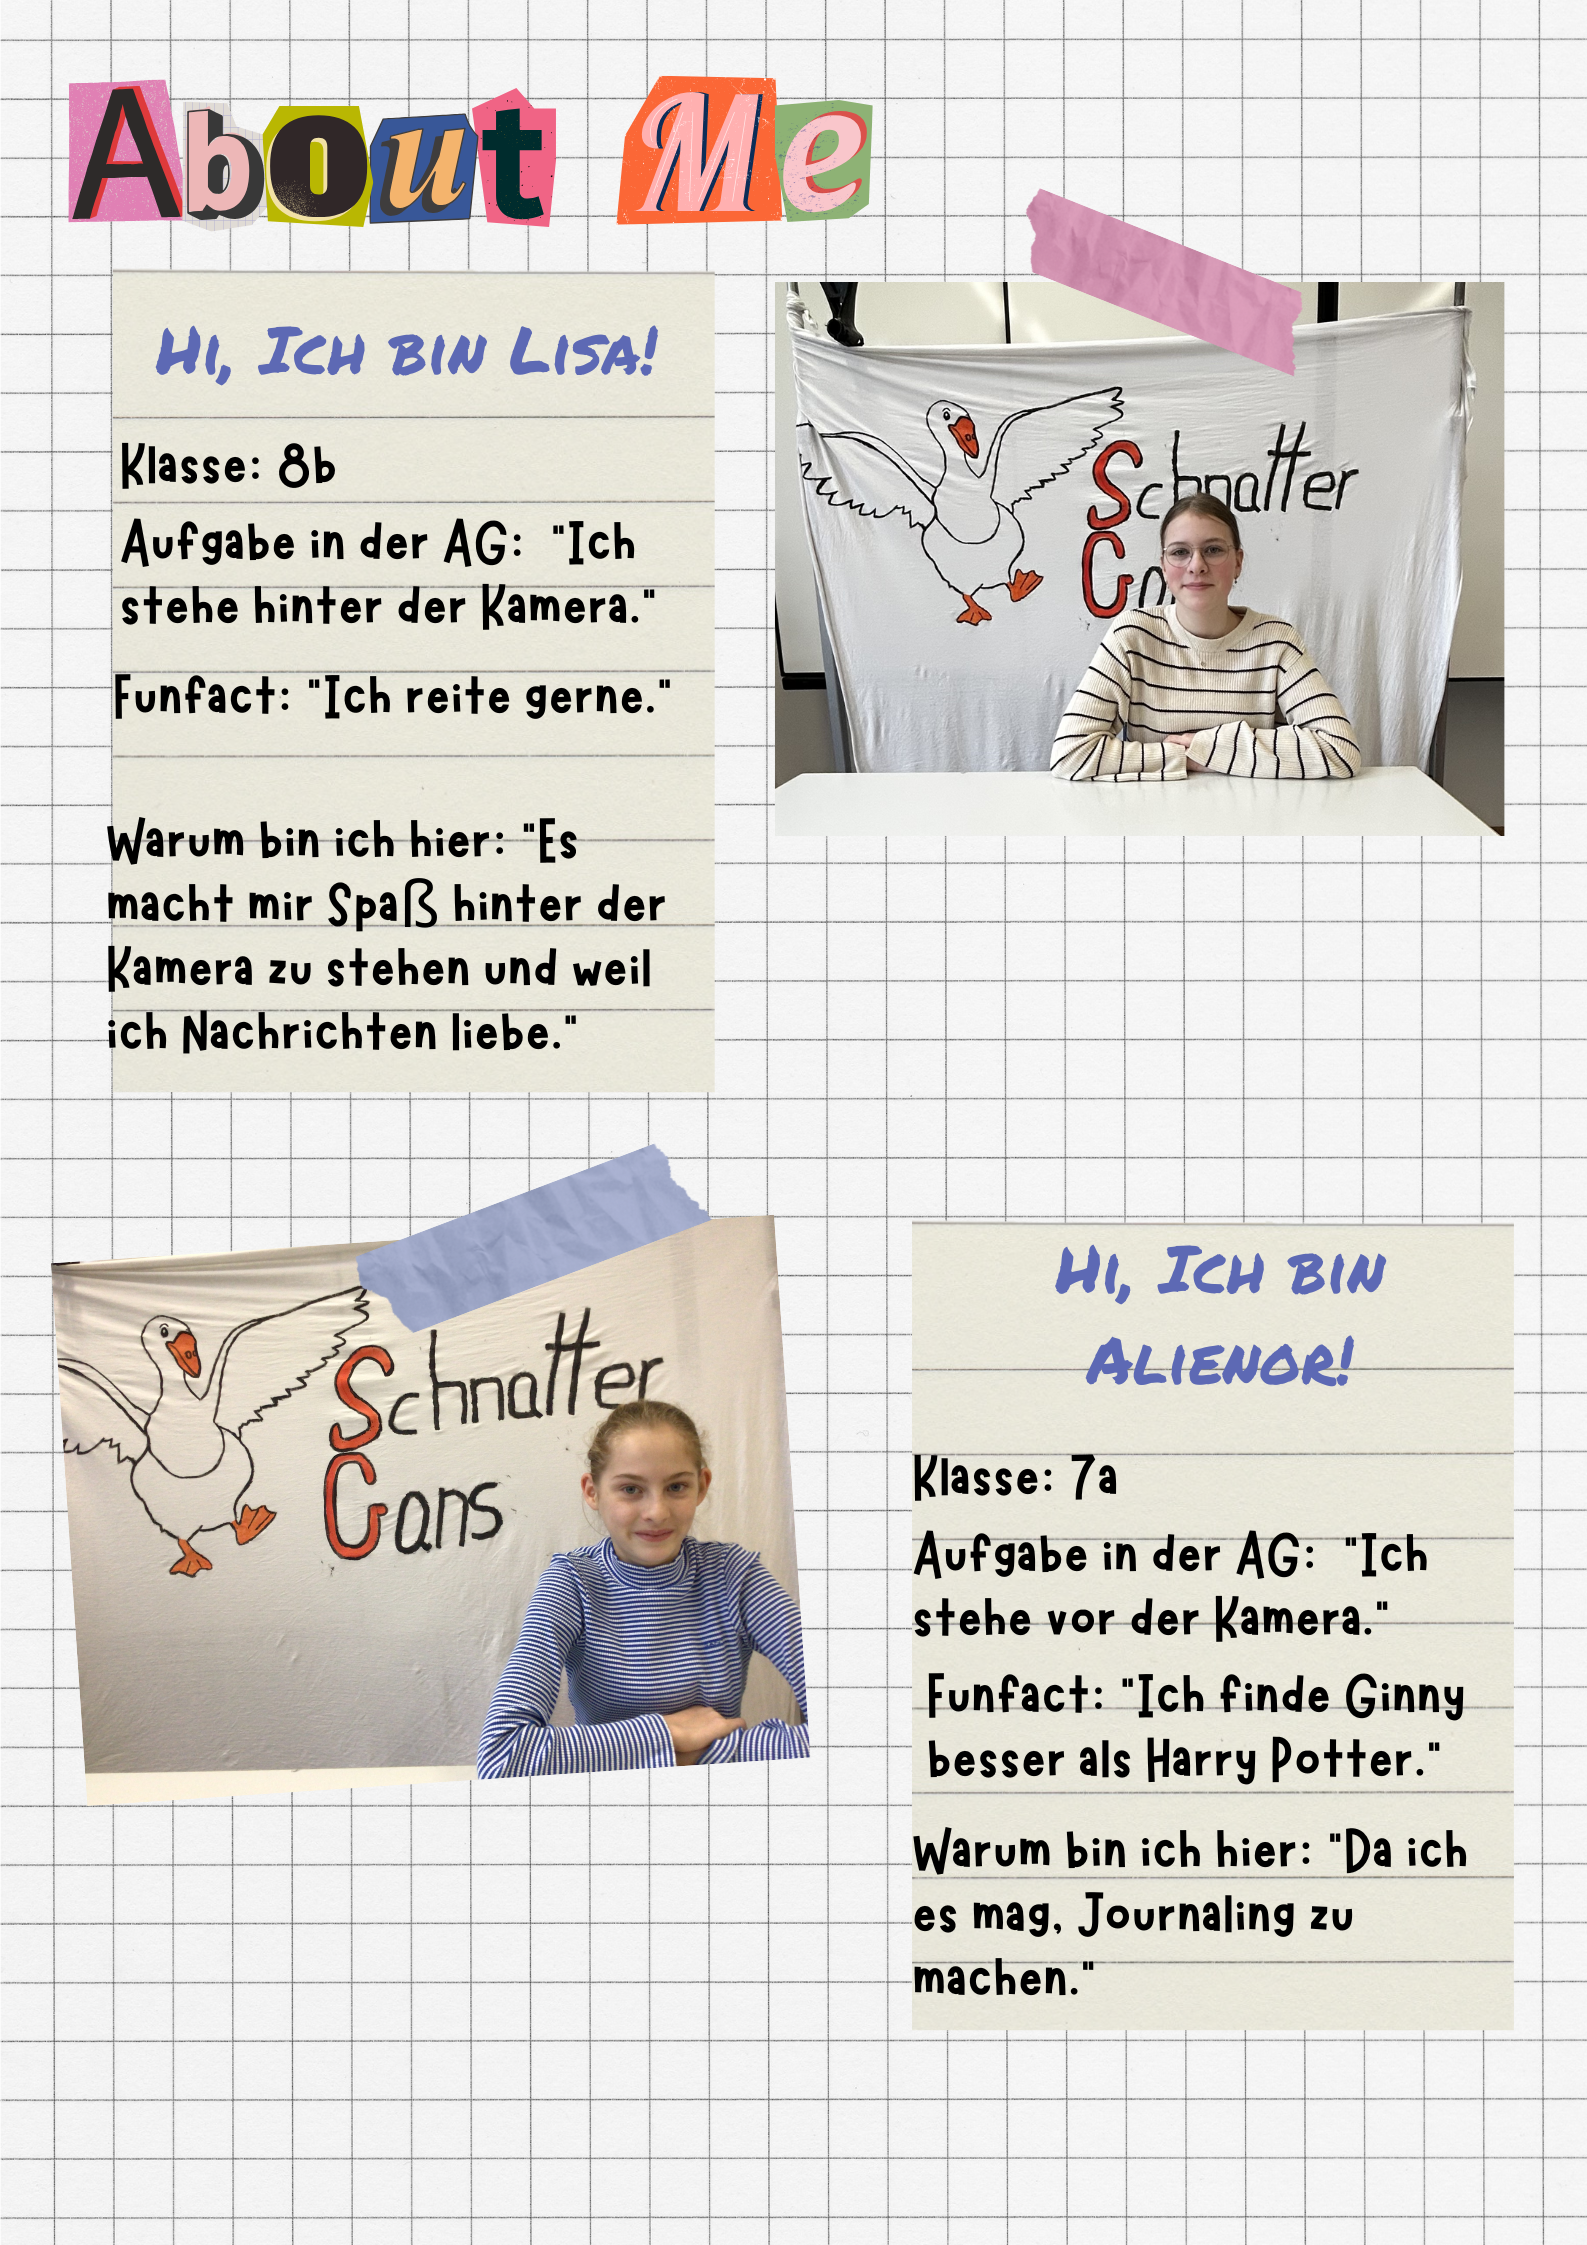 About Me
Hi, Ich bin Lisa!
Klasse: 8b
Aufgabe in der AG: "Ich
stehe hinter der Kamera."
Funfact: "Ich reite gerne."
Warum bin ich hier: "Es
macht mir Spaß hinter der
Kamera zu stehen und weil
ich Nachrichten liebe."
Schnatter
Ga
Schnatter
Gans
Hi, Ich bin
Alienor!
Klasse: 7a
Aufgabe in der AG: "Ich
stehe vor der Kamera."
Funfact: "Ich finde Ginny
besser als Harry Potter."
Warum bin ich hier: "Da ich
es mag, Journaling zu
machen."